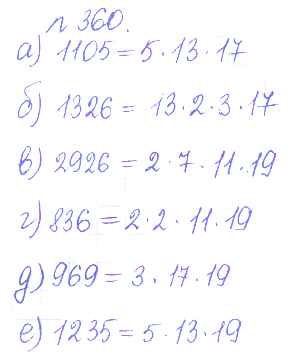 № 360.
а) 1105 = 5 · 13 · 17
б) 1326 = 13 · 2 · 3 · 17
в) 2926 = 2 · 7 · 11 · 19
г) 836 = 2 · 2 · 11 · 19
д) 969 = 3 · 17 · 19
е) 1235 = 5 · 13 · 19